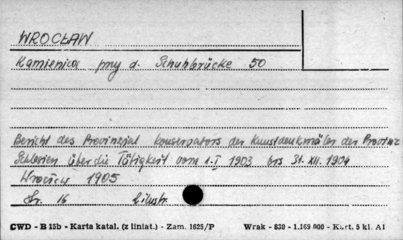 WROCŁAW
Kamienica przy d. Schuhbrücke 50
Bericht des Provinzial Konservators der Kunstdenkmäler der Provinz
Schlesien über die Tätigkeit vom 1.I 1903 bis 31.XII.1904
Wrocław 1905
Str. 16 ilustr.
CWD - B 15b - Karta katal. (z liniat.) - Zam. 1625/P Wrak - 630 - 1.169 000 - Kart. 5 kl. A1